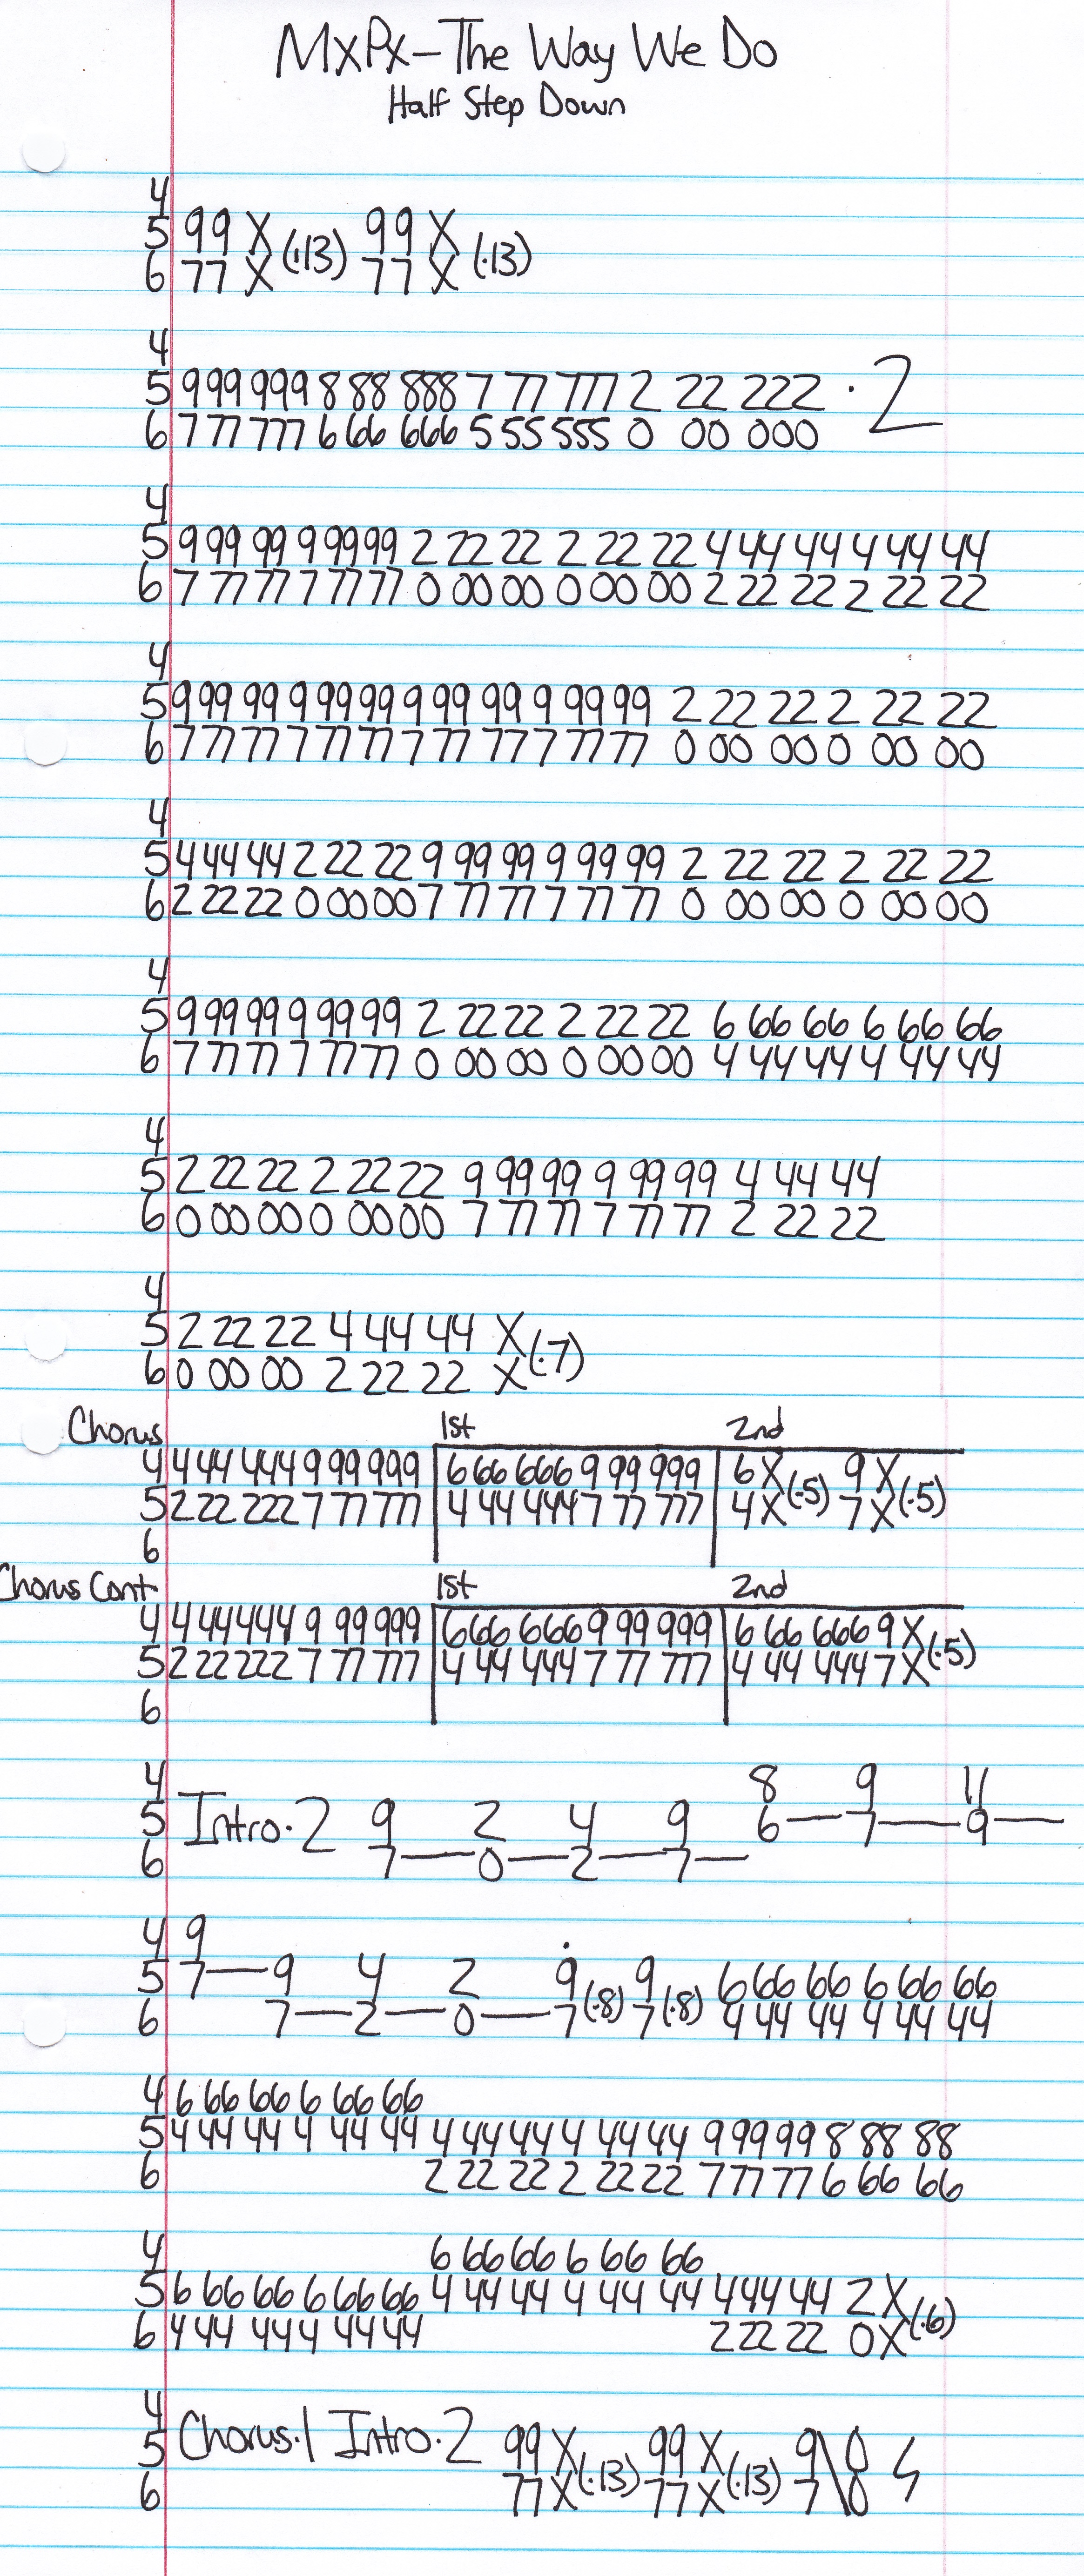 MxPx–The Way We Do
Half Step Down
4
5 99 X (·13) 99 X (·13)
6 77 X 77 X
4
5 9 99 999 8 88 888 7 77 777 2 22 222 · 2
6 7 77 777 6 66 666 5 55 555 0 00 000
4
5 9 99 99 9 99 99 2 22 22 2 22 22 4 44 44 4 44 44
6 7 77 77 7 77 77 0 00 00 0 00 00 2 22 22 2 22 22
4
5 9 99 99 9 99 99 9 99 99 9 99 99 2 22 22 2 22 22
6 7 77 77 7 77 77 7 77 77 7 77 77 0 00 00 0 00 00
4
5 4 44 44 2 22 22 9 99 99 9 99 99 2 22 22 2 22 22
6 2 22 22 0 00 00 7 77 77 7 77 77 0 00 00 0 00 00
4
5 9 99 99 9 99 99 2 22 22 2 22 22 6 66 66 6 66 66
6 7 77 77 7 77 77 0 00 00 0 00 00 4 44 44 4 44 44
4
5 2 22 22 2 22 22 9 99 99 9 99 99 4 44 44
6 0 00 00 0 00 00 7 77 77 7 77 77 2 22 22
4
5 2 22 22 4 44 44 X (·7)
6 0 00 00 2 22 22 X
Chorus 1st 2nd
4 4 44 444 9 99 999 6 66 666 9 99 999 6 X (·5) 9 X (·5)
5 2 22 222 7 77 777 4 44 444 7 77 777 4 X 7 X
6
Chorus Cont 1st 2nd
4 4 44 444 9 99 999 6 66 666 9 99 999 6 66 666 9 X (·5)
5 2 22 222 7 77 777 4 44 444 7 77 777 4 44 444 7 X
6
4 8 9 11
5 Intro·2 9 2 4 9 6— 7— 9—
6 7— 0— 2— 7—
4 9
5 7— 9 4 2 9 (·8) 9 (·8) 6 66 66 6 66 66
6 7— 2— 0— 7 7 4 44 44 4 44 44
4 6 66 66 6 66 66
5 4 44 44 4 44 44 4 44 44 4 44 44 9 99 99 8 88 88
6 2 22 22 2 22 22 7 77 77 6 66 66
4 6 66 66 6 66 66
5 6 66 66 6 66 66 4 44 44 4 44 44 4 44 44 2 X (·6)
6 4 44 44 4 44 44 2 22 22 0 X
4
5 Chorus·1 Intro·2 99 X (·13) 99 X (·13) 9 \ 0
6 77 X 77 X 7 \ 0